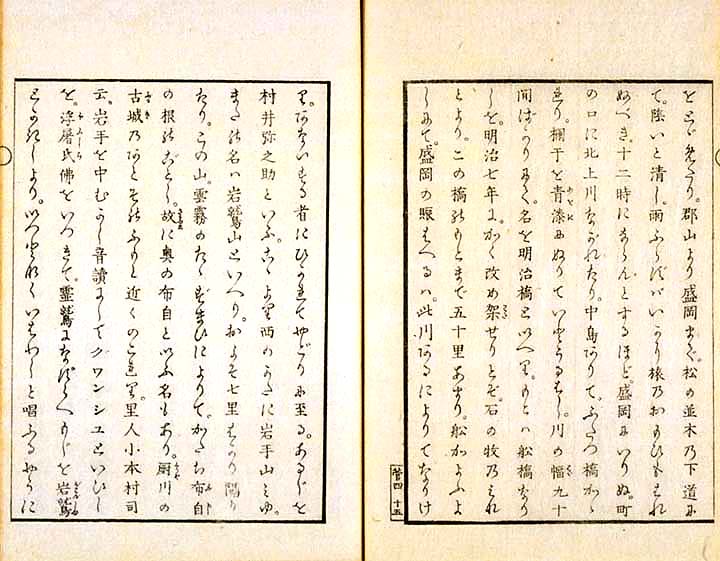 をとゞめたり。郡山より盛岡まで。松の並木乃下道に
て。陰いと清し。雨ふらずバいかなり旅乃おもひもはれ
ぬべき。十二時にならんとするほど。盛岡にいりぬ。町
の口に北上川ながれたり。中島ありて。ふたつ橋かゝ
れり。欄干を青漆にぬりていとうるはし。川の幅九十
間ばかりあり。名を明治橋といへり。もとハ船橋なり
しを。明治七年に。かく改め架せりとぞ。石の牧乃みなと
とより。この橋のもとまで五十里あまり。船かよふよ
しにて。盛岡の賑はへるハ。此川あるによりてなりけ
十五
り。あないする者にひかれてやどりに至る。あるじを
村井弥之助といふ。こゝより西のかたに岩手山みゆ。
またの名ハ岩鷲山といへり。およそ七里ばかり隔り
たり。この山。雲霧のたゝずまひによりて。かたち布自
の根のごとし。故に奥の布自といふ名もあり。厨川の
古城乃あともそのふもと近くのこれり。里人小本村司
云。岩手を中むかし音讀にしてクワンシユといひし
を。浮屠氏佛をいつきて。霊鷲になぞらへもじを岩鷲
とかきしより。いつとなくいはわしと唱ふるやうに